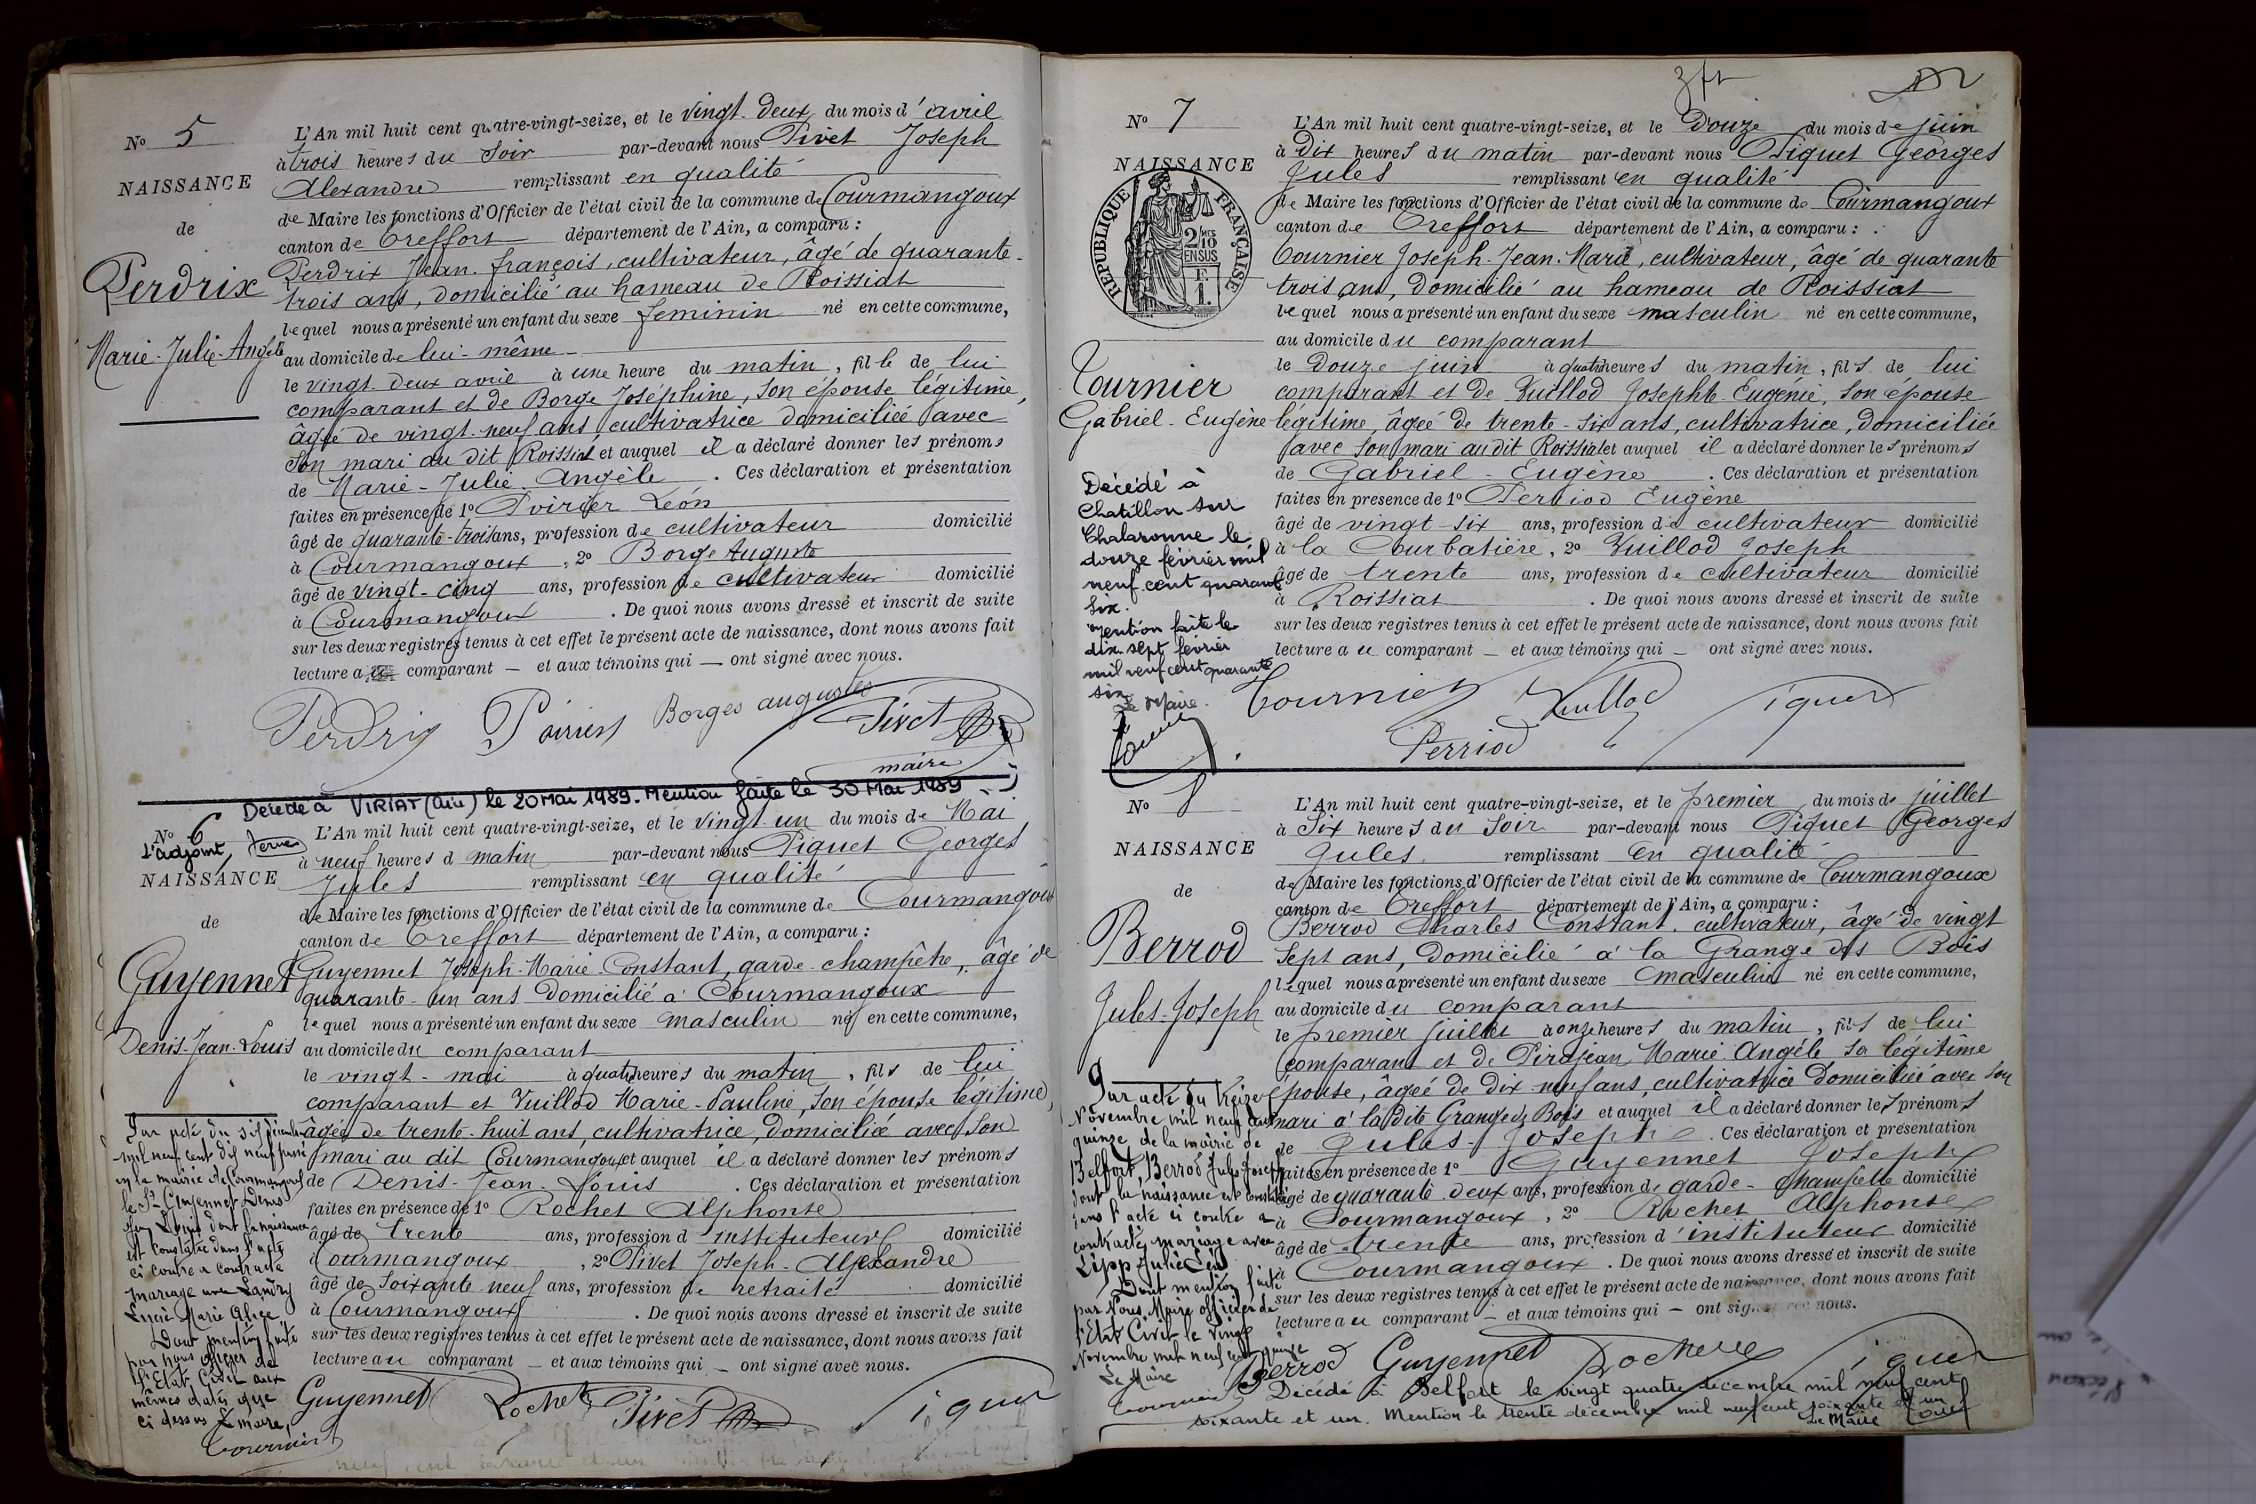 No 5
NAISSANCE
de
Perdrix
Marie-Julie-Angèle
L'An mil huit cent quatre-vingt-seize, et le vingt-deux du mois d'avril
à trois heures du Soir par-devant nous Pivet Joseph
Alexandre remplissant en qualité
de Maire les fonctions d'Officier de l'état civil de la commune de Courmangoux
canton de Treffort département de l'Ain, a comparu :
Perdrix Jean-françois, cultivateur, âgé de quarante-
trois ans, domicilié au hameau de Roissiat
lequel nous a présenté un enfant du sexe feminin né en cette commune,
au domicile de lui-même
le vingt-deux avril à une heure du matin, fille de lui
comparant et de Borge Joséphine, son épouse légitime,
âgée de vingt-neuf ans cultivatrice domiciliée avec
son mari au dit Roissiat et auquel il a déclaré donner les prénoms
de Marie-Julie-Angèle. Ces déclaration et présentation
faites en présence de 1° Poirier Léon
âgé de quarante-trois ans, profession de cultivateur domicilié
à Courmangoux, 2° Borge Auguste
âgé de vingt-cinq ans, profession de cultivateur domicilié
à Courmangoux. De quoi nous avons dressé et inscrit de suite
sur les deux registres tenus à cet effet le présent acte de naissance, dont nous avons fait
lecture a comparant — et aux témoins qui — ont signé avec nous.
Perdrix Poirier Borges auguste Pivet
maire
Décédé à VIRIAT (Ain) le 20 Mai 1989. Mention faite le 30 Mai 1989
No 6
L'adjoint,
NAISSANCE
de
Guyennet
Denis-Jean-Louis
L'An mil huit cent quatre-vingt-seize, et le vingt-un du mois de Mai
à neuf heures d matin par-devant nous Piquet Georges
Jules remplissant en qualité
de Maire les fonctions d'Officier de l'état civil de la commune de Courmangoux
canton de Treffort département de l'Ain, a comparu :
Guyennet Joseph-Marie-Constant, garde-champêtre, âgé de
quarante-un ans domicilié à Courmangoux
lequel nous a présenté un enfant du sexe masculin né en cette commune,
au domicile du comparant
le vingt-mai à quatre heures du matin, fils de lui
comparant et Vuillod Marie-Pauline, son épouse légitime,
âgée de trente-huit ans, cultivatrice, domiciliée avec son
mari au dit Courmangoux et auquel il a déclaré donner les prénoms
de Denis-Jean-Louis. Ces déclaration et présentation
faites en présence de 1° Rochet Alphonse
âgé de trente ans, profession d'instituteur domicilié
à Courmangoux, 2° Pivet Joseph-Alexandre
âgé de soixante neuf ans, profession de retraité domicilié
à Courmangoux. De quoi nous avons dressé et inscrit de suite
sur les deux registres tenus à cet effet le présent acte de naissance, dont nous avons fait
lecture au comparant — et aux témoins qui — ont signé avec nous.
Guyennet Rochet Pivet Piquet
Par acte du six décembre
mil neuf cent dix neuf passé
en la mairie de Courmangoux
le Sr Guyennet Denis
Jean Louis dont la naissance
est constatée dans l'acte
ci contre a contracté
mariage avec Landry
Lucie Marie Alice
Dont mention faite
par nous officier de
l'Etat Civil aux
mêmes dates que
ci dessus Le maire,
Tournier
No 7
NAISSANCE
REPUBLIQUE FRANÇAISE
2/10
EN SUS
F.
1.
Tournier
Gabriel-Eugène
L'An mil huit cent quatre-vingt-seize, et le Douze du mois de juin
à Dix heures du matin par-devant nous Piquet Georges
Jules remplissant en qualité
de Maire les fonctions d'Officier de l'état civil de la commune de Courmangoux
canton de Treffort département de l'Ain, a comparu :
Tournier Joseph-Jean-Marie, cultivateur, âgé de quarante
trois ans, domicilié au hameau de Roissiat
lequel nous a présenté un enfant du sexe masculin né en cette commune,
au domicile du comparant
le Douze juin à quatre heures du matin, fils de lui
comparant et de Vuillod Josephte Eugénie, son épouse
légitime, âgée de trente-six ans, cultivatrice, domiciliée
avec son mari au dit Roissiat et auquel il a déclaré donner les prénoms
de Gabriel-Eugène. Ces déclaration et présentation
faites en présence de 1° Perriod Eugène
âgé de vingt-six ans, profession de cultivateur domicilié
à la Courbatière, 2° Vuillod Joseph
âgé de trente ans, profession de cultivateur domicilié
à Roissiat. De quoi nous avons dressé et inscrit de suite
sur les deux registres tenus à cet effet le présent acte de naissance, dont nous avons fait
lecture au comparant — et aux témoins qui — ont signé avec nous.
Tournier Vuillod Piquet
Perriod
Décédé à
Chatillon sur
Chalaronne le
douze février mil
neuf cent quarante
six.
Mention faite le
dix-sept février
mil neuf cent quarante
six
Le Maire.
No 8
NAISSANCE
de
Berrod
Jules-Joseph
L'An mil huit cent quatre-vingt-seize, et le premier du mois de juillet
à Six heures du Soir par-devant nous Piquet Georges
Jules remplissant en qualité
de Maire les fonctions d'Officier de l'état civil de la commune de Courmangoux
canton de Treffort département de l'Ain, a comparu :
Berrod Charles Constant, cultivateur, âgé de vingt
sept ans, domicilié à la Grange des Bois
lequel nous a présenté un enfant du sexe masculin né en cette commune,
au domicile du comparant
le premier juillet à onze heures du matin, fils de lui
comparant et de Pirajean Marie Angèle sa légitime
épouse, âgée de dix neuf ans, cultivatrice domiciliée avec son
mari à la dite Grange ds Bois et auquel il a déclaré donner les prénoms
de Jules-Joseph. Ces déclaration et présentation
faites en présence de 1° Guyennet Joseph
âgé de quarante-deux ans, profession de garde-champêtre domicilié
à Courmangoux, 2° Rochet Alphonse
âgé de trente ans, profession d'instituteur domicilié
à Courmangoux. De quoi nous avons dressé et inscrit de suite
sur les deux registres tenus à cet effet le présent acte de naissance, dont nous avons fait
lecture au comparant — et aux témoins qui — ont signé avec nous.
Berrod Guyennet Rochet Piquet
Par acte du treize
Novembre mil neuf cent
quinze de la mairie de
Belfort, Berrod Jules Joseph
dont la naissance est constatée
dans l'acte ci contre a
contracté mariage avec
Lipp Julie Léa
Dont mention faite
par Nous, Maire officier de
l'Etat Civil le vingt
Novembre mil neuf cent quinze
Le Maire
Tournier
Décédé à Belfort le vingt quatre décembre mil neuf cent
soixante et un. Mention le trente décembre mil neuf cent soixante et un
Le Maire